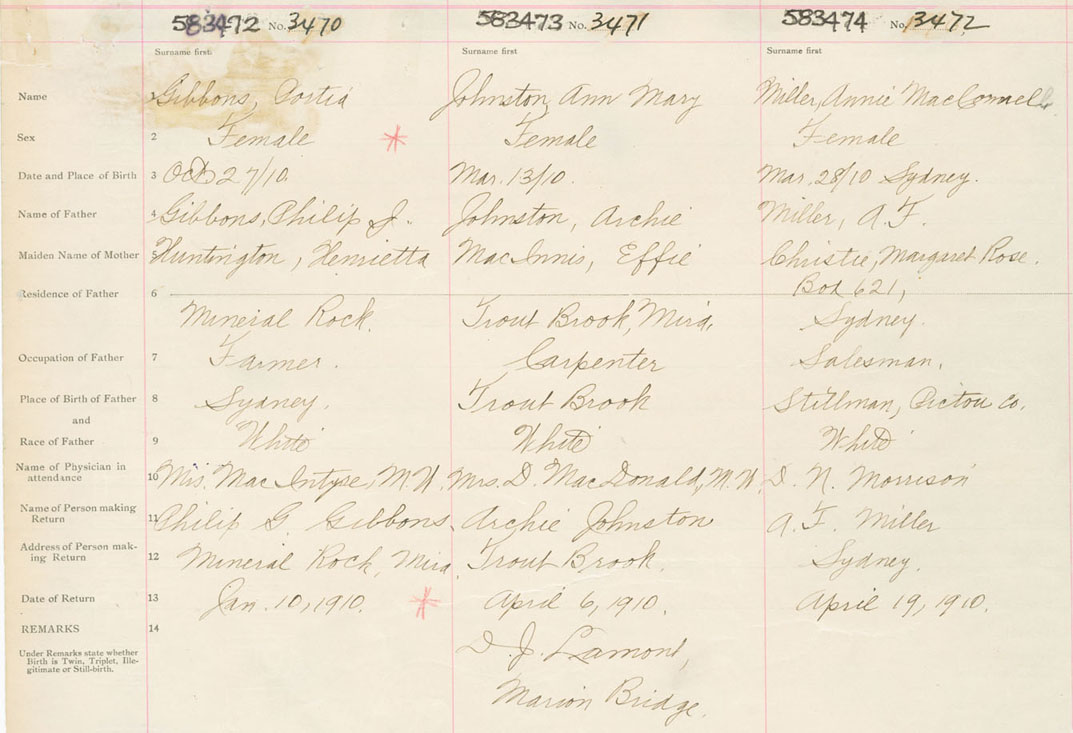 583472 No. 3470 583473 No. 3471 583474 No. 3472
Surname first. Surname first Surname first
Name 1 Gibbons, Portia Johnston, Ann Mary Miller, Annie MacConnell
Sex 2 Female Female Female
Date and Place of Birth 3 Oct 27/10. Mar. 13/10. Mar. 28/10 Sydney.
Name of Father 4 Gibbons, Philip J. Johnston, Archie Miller, A. F.
Maiden Name of Mother 5 Huntington, Henrietta MacInnis, Effie Christie, Margaret Rose.
Box 621,
Residence of Father 6 Mineral Rock. Trout Brook, Mira, Sydney.
Occupation of Father 7 Farmer. Carpenter Salesman.
Place of Birth of Father 8 Sydney. Trout Brook Stillman, Pictou Co.
and
Race of Father 9 White White White
Name of Physician in
attendance 10 Mrs. MacIntyre, M.W. Mrs. D. MacDonald, M.W. D. N. Morrison
Name of Person making
Return 11 Philip G. Gibbons, Archie Johnston A. F. Miller
Address of Person mak-
ing Return 12 Mineral Rock, Mira Trout Brook. Sydney.
Date of Return 13 Jan. 10, 1910. April 6, 1910. April 19, 1910.
REMARKS 14
D. J. Lamont,
Under Remarks state whether
Birth is Twin, Triplet, Ille-
gitimate or Still-birth.
Marion Bridge.